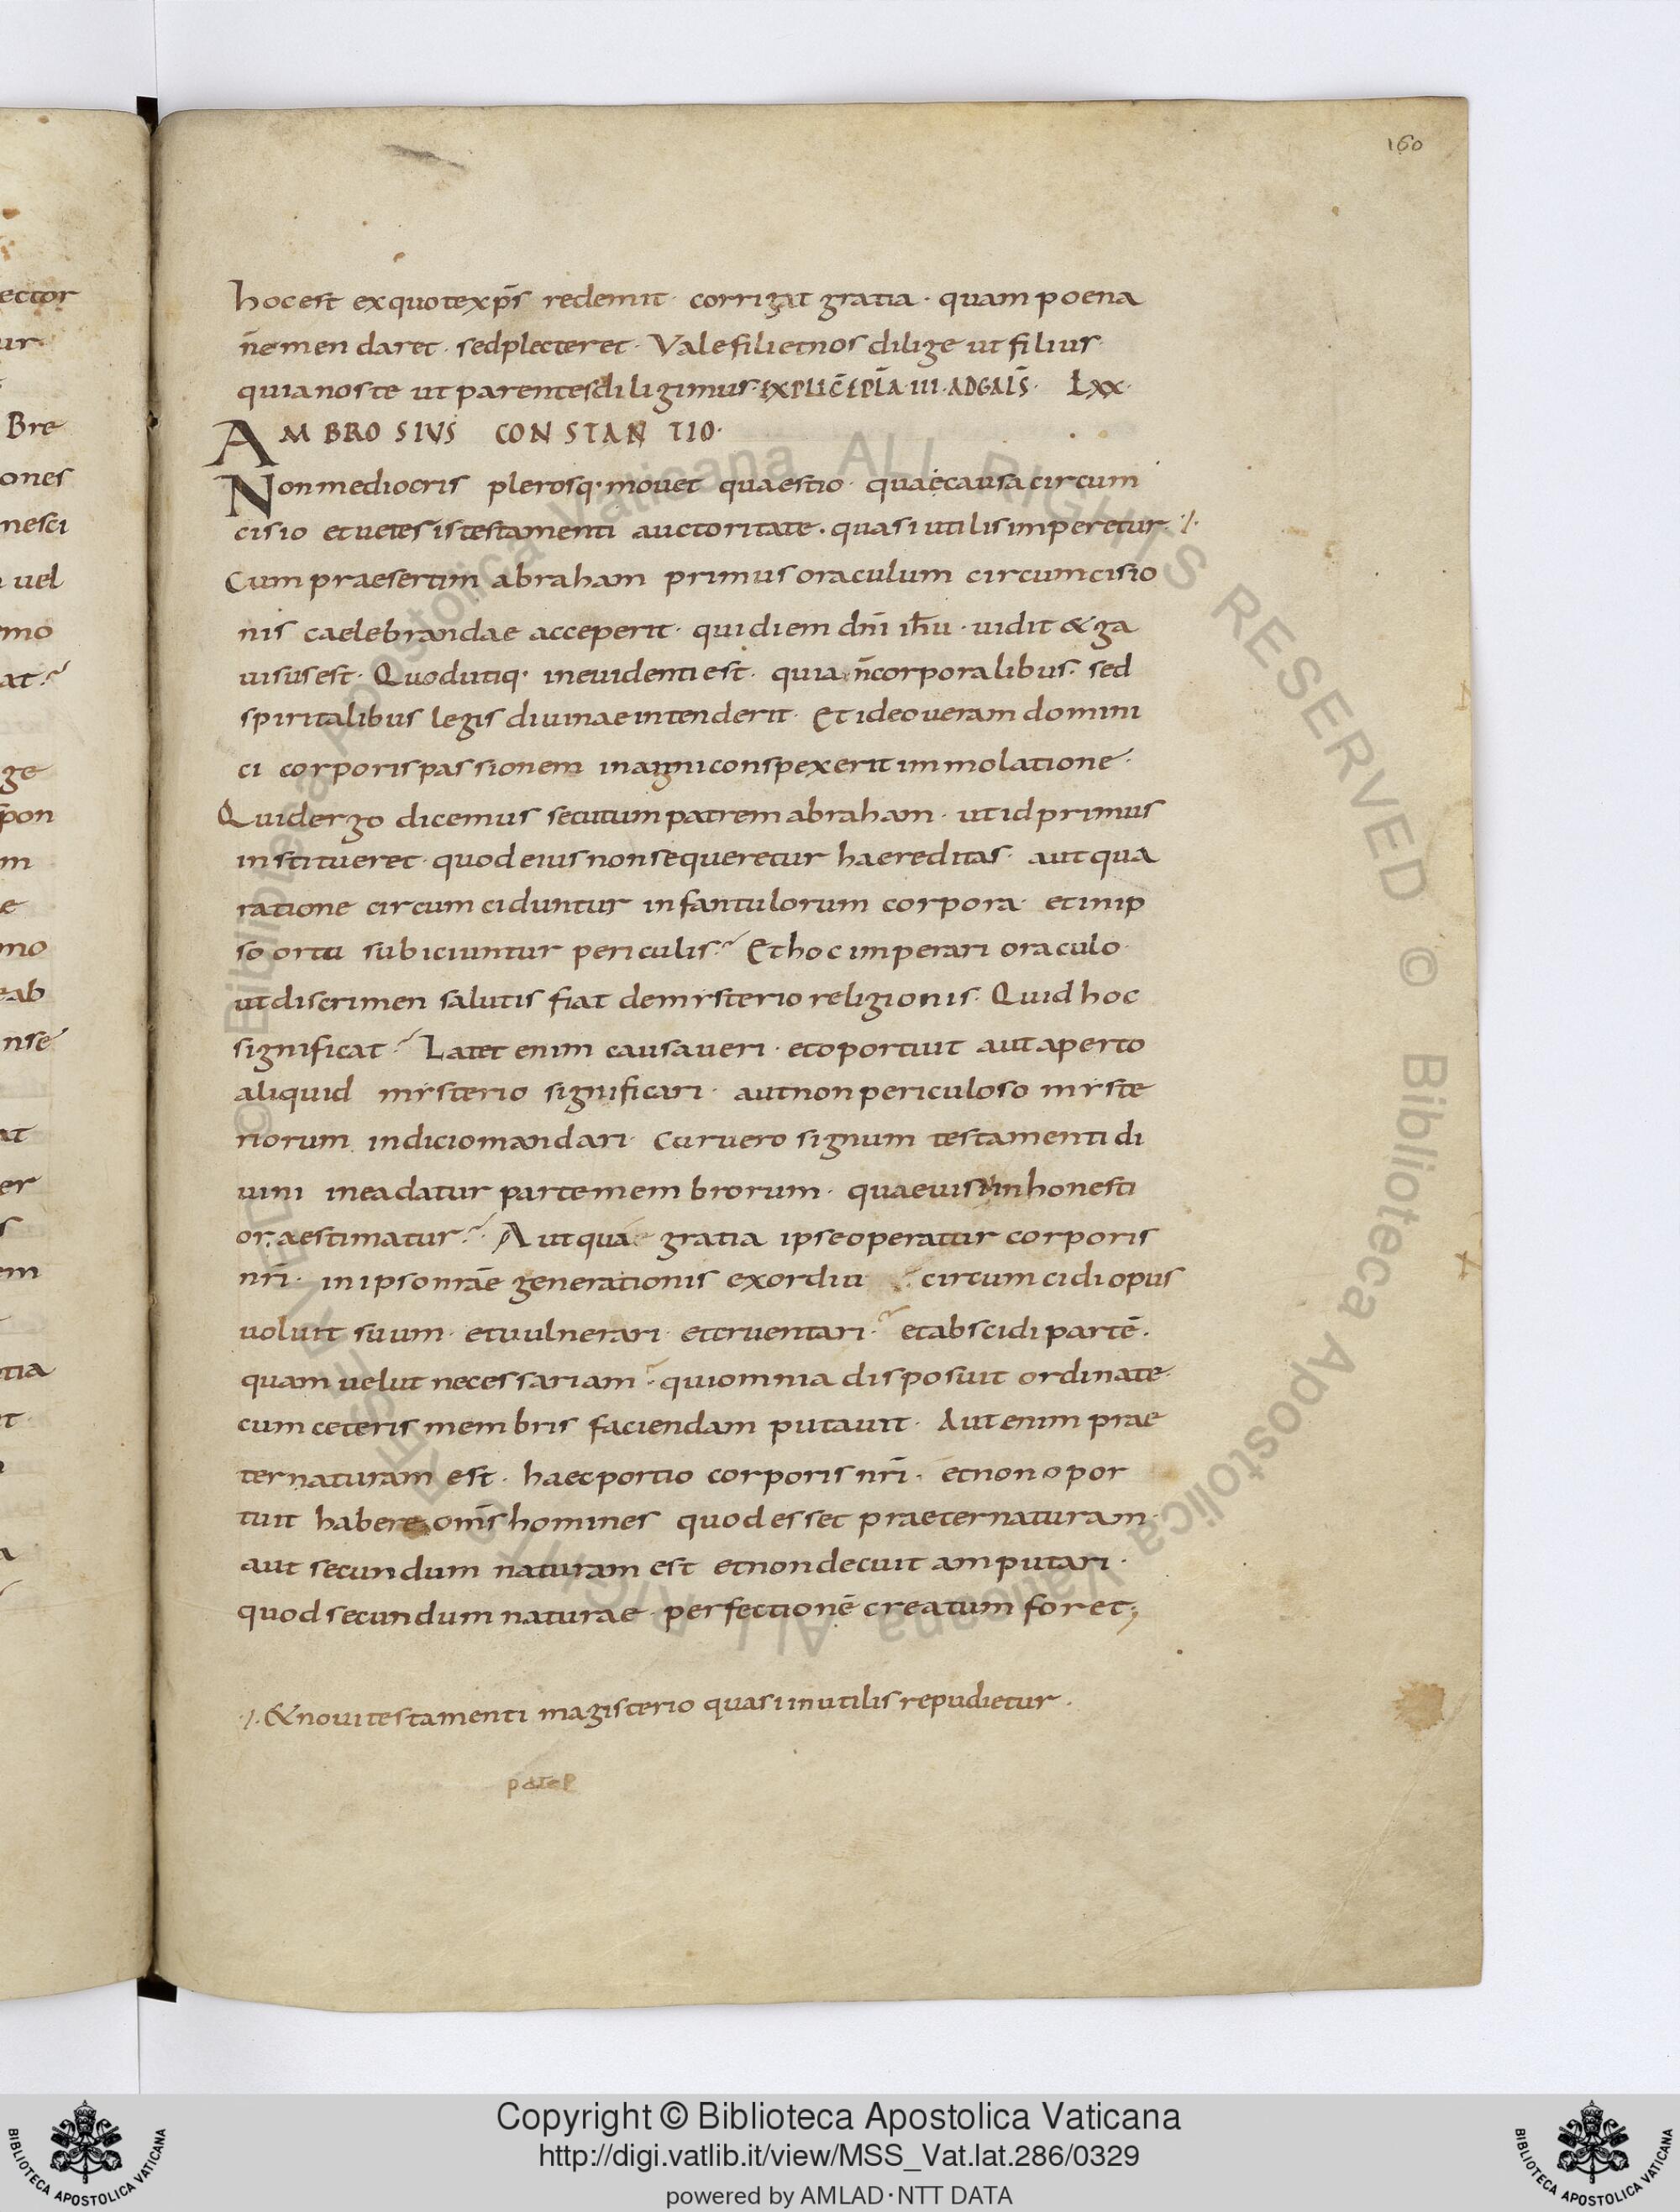 160
hoc est ex quo te xp̄s redemit · corrigat gratia · quam poena
n̄ emendaret · sed plecteret · Vale fili et nos dilige ut filius ·
quia nos te ut parentes diligimus · EXPLIC̄ EPL̄A · III · AD GALS̄ · LXX ·
AMBROSIVS CONSTANTIO ·
Non mediocris plerosq· mouet quaestio · quae causa circum
cisio et ueteris testamenti auctoritate · quasi utilis imperetur ·/·
Cum praesertim abraham primus oraculum circumcisio
nis caelebrandae acceperit · qui diem dn̄i ih̄u · uidit & ga
uisus est · Quod utiq· in euidenti est · quia n̄ corporalibus · sed
spiritalibus legis diuinae intenderit · Et ideo ueram domini
ci corporis passionem in agni conspexerit immolatione ·
Quid ergo dicemus secutum patrem abraham · ut id primus
institueret · quod eius non sequeretur haereditas · aut qua
ratione circumciduntur infantulorum corpora · et in ip
so ortu subiciuntur periculis? Et hoc imperari oraculo ·
ut discrimen salutis fiat de mysterio religionis · Quid hoc
significat? Latet enim causa ueri · et oportuit aut aperto
aliquid mysterio significari · aut non periculoso myste
riorum indicio mandari · Cur uero signum testamenti di
uini in ea datur parte membrorum · quae uisu inhonesti
or aestimatur? Aut qua gratia ipse operatur corporis
nr̄i · in ipso nr̄ae generationis exordiu ? circumcidi opus
uoluit suum · et uulnerari · et cruentari? et abscidi partē ·
quam uelut necessariam? qui omnia disposuit ordinate ·
cum ceteris membris faciendam putauit · Aut enim prae
ter naturam est · haec portio corporis nr̄i · et non opor
tuit habere om̄s homines quod esset praeter naturam ·
aut secundum naturam est et non decuit amputari ·
quod secundum naturae perfectionē creatum foret;
·/· & noui testamenti magisterio quasi inutilis repudietur ·
Copyright © Biblioteca Apostolica Vaticana
http://digi.vatlib.it/view/MSS_Vat.lat.286/0329
powered by AMLAD · NTT DATA
BIBLIOTECA APOSTOLICA VATICANA
BIBLIOTECA APOSTOLICA VATICANA
© Biblioteca Apostolica Vaticana ALL RIGHTS RESERVED
© Biblioteca Apostolica Vaticana ALL RIGHTS RESERVED